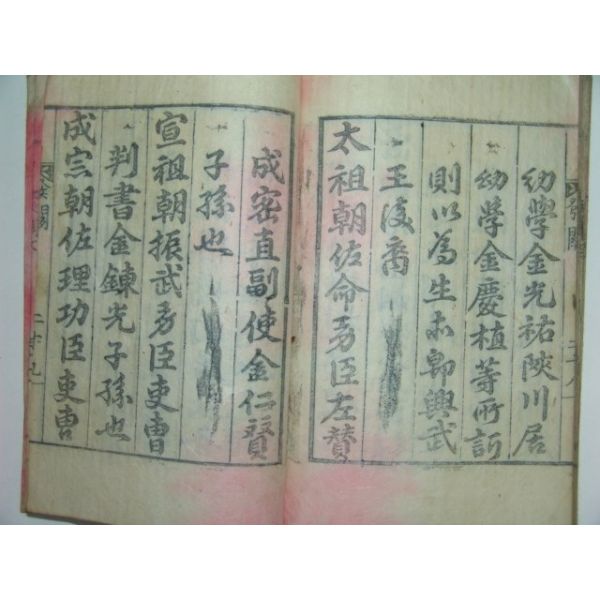 幼學金光祐陜川居
幼學金慶植等所訴
則以為生等卽興武
王後裔
太祖朝佐命功臣左賛
成密直副使金仁賛
子孫也
宣祖朝振武功臣吏曹
判書金鍊光子孫也
成宗朝佐理功臣吏曹